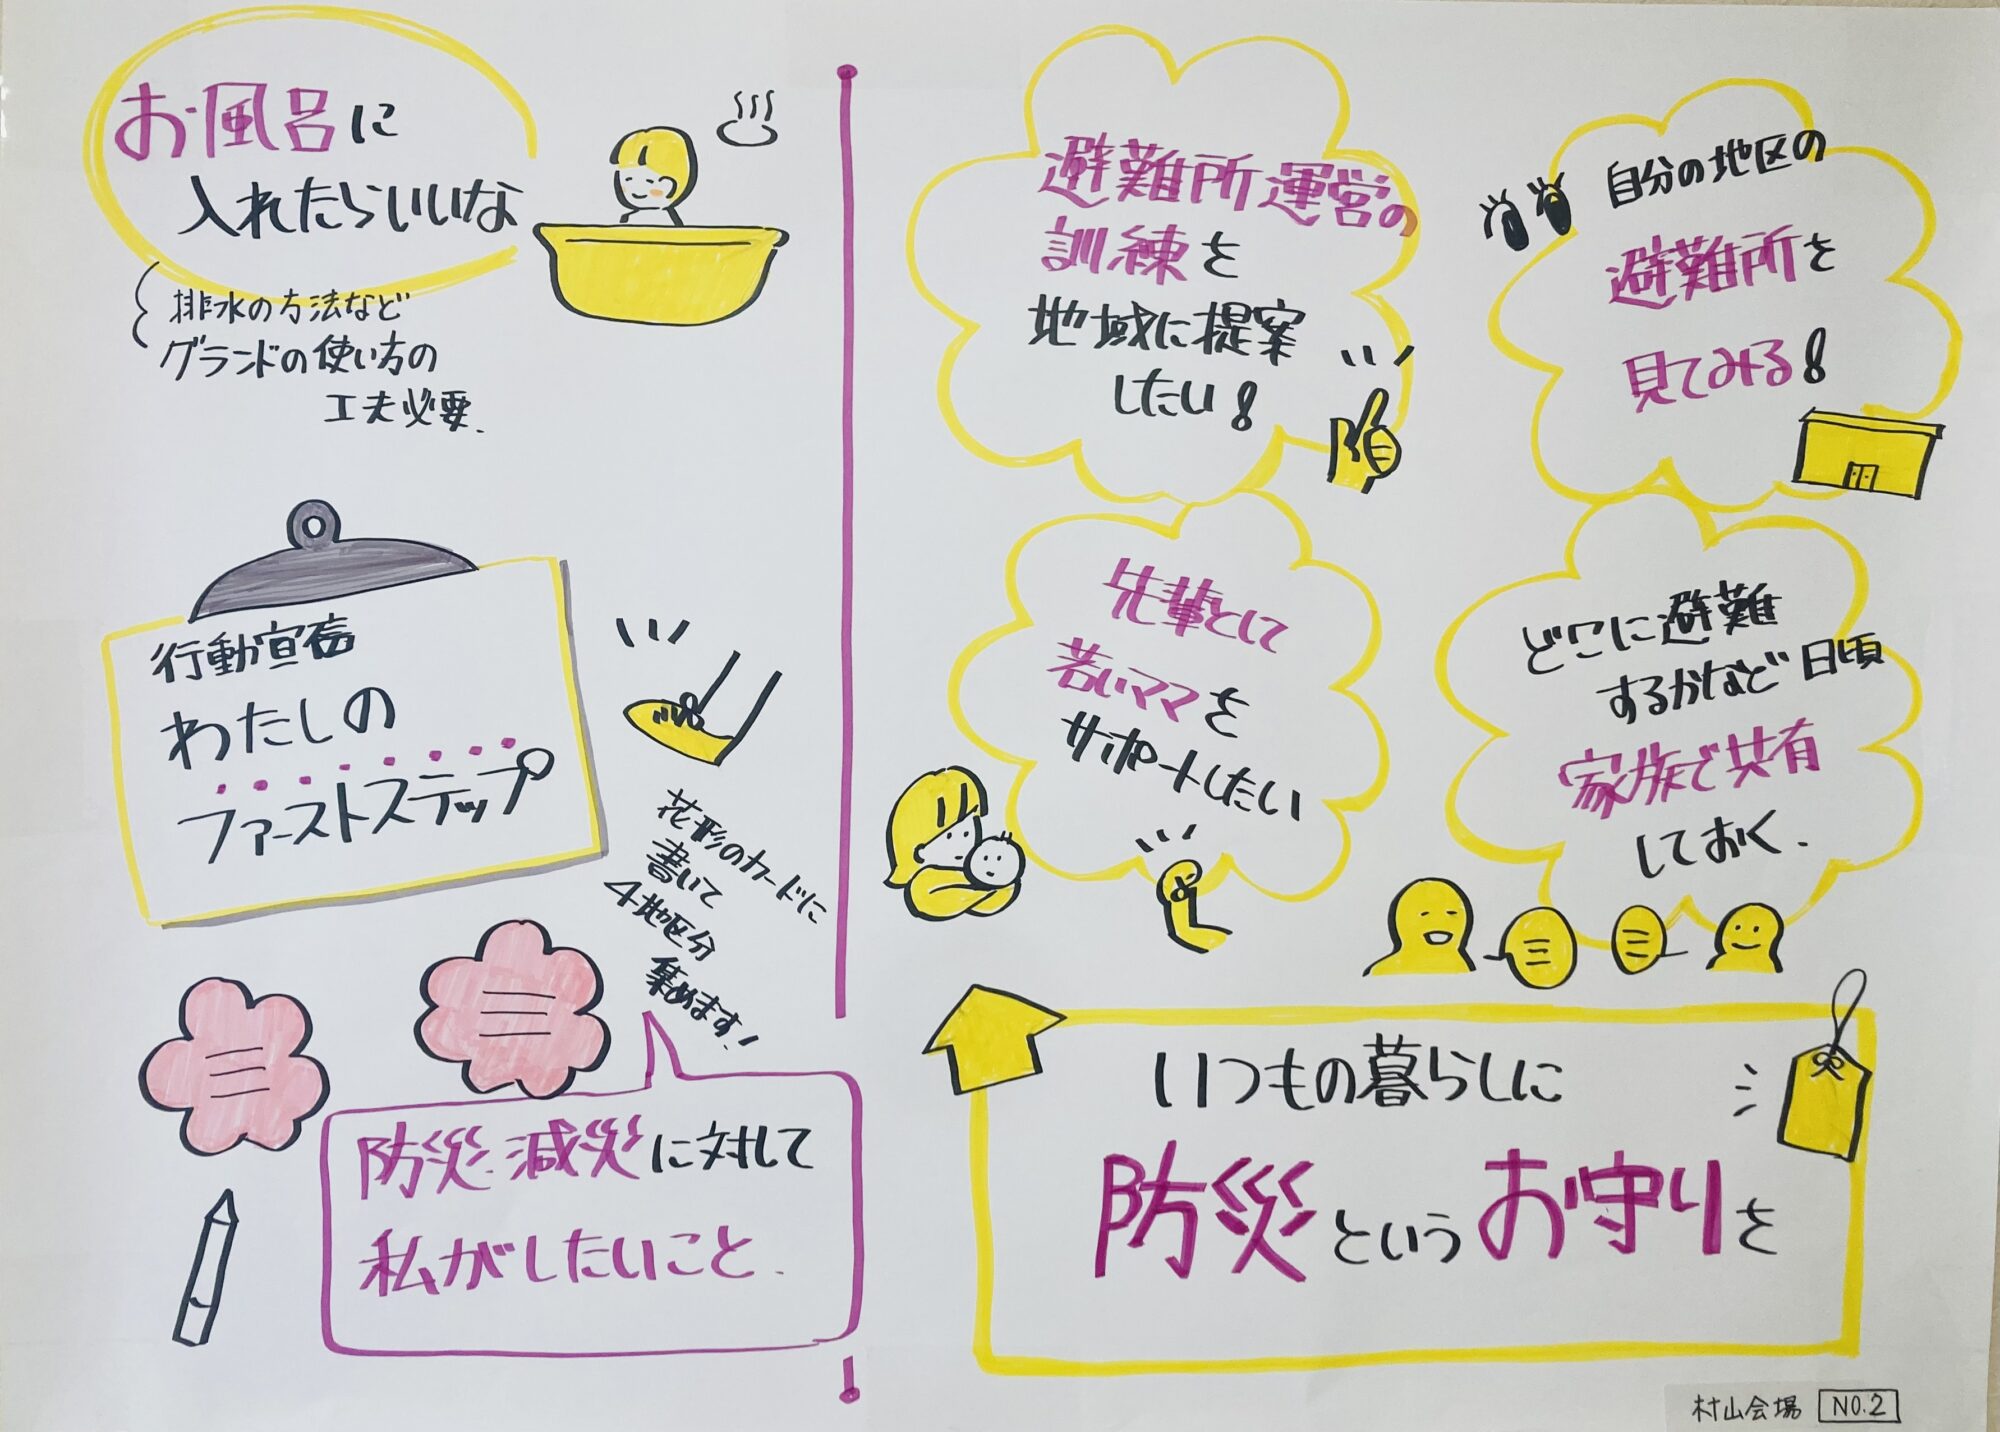 お風呂に
入れたらいいな
排水の方法など
グランドの使い方の
工夫必要.
行動宣言
わたしの
ファーストステップ
花形のカードに
書いて
4地区分
集めます!
防災.減災に対して
私がしたいこと.
避難所運営の
訓練を
地域に提案
したい!
自分の地区の
避難所を
見てみる!
先輩として
若いママを
サポートしたい
どこに避難
するかなど日頃
家族で共有
しておく.
いつもの暮らしに
防災というお守りを
村山会場 NO.2